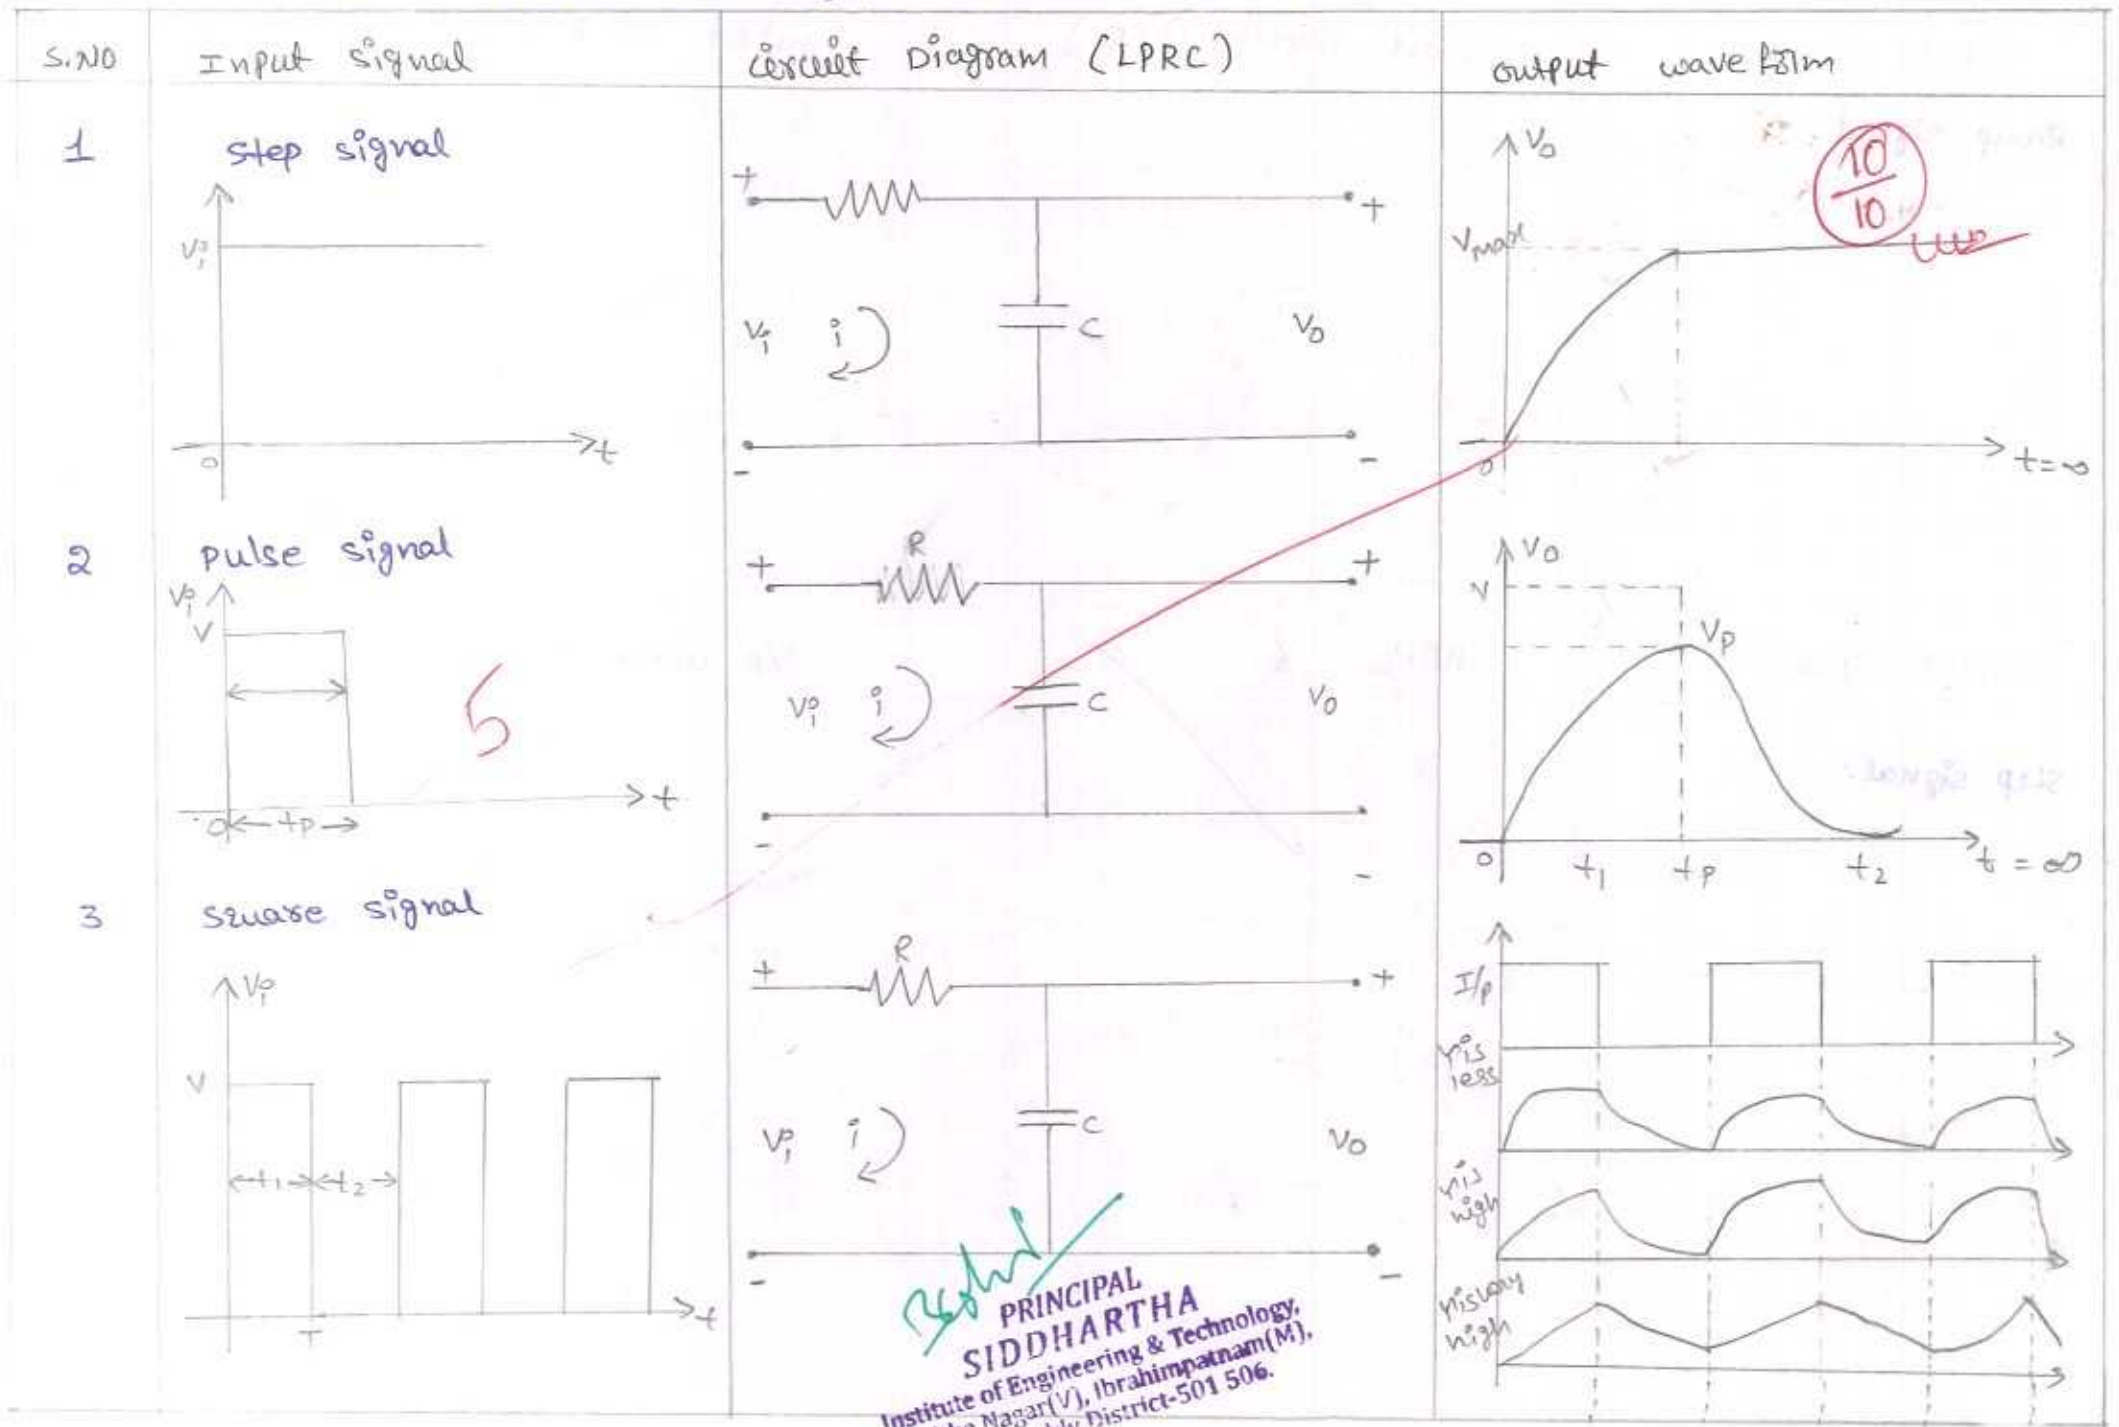 S.NO Input signal circuit Diagram (LPRC) output wave form
1 step signal
Vi
0
t
+ +
Vi i C V0
- -
V0
10/10
Vmax
0 t=∞
2 pulse signal
Vi
V
5
0 tp t
R
+ +
Vi i C V0
- -
V0
V
Vp
0 t1 tp t2 t = ∞
3 square signal
Vi
V
t1 t2
T t
R
+ +
Vi i C V0
- -
I/p
is
less
is
high
is very
high
PRINCIPAL
SIDDHARTHA
Institute of Engineering & Technology,
Nagar(V), Ibrahimpatnam(M),
District-501 506.